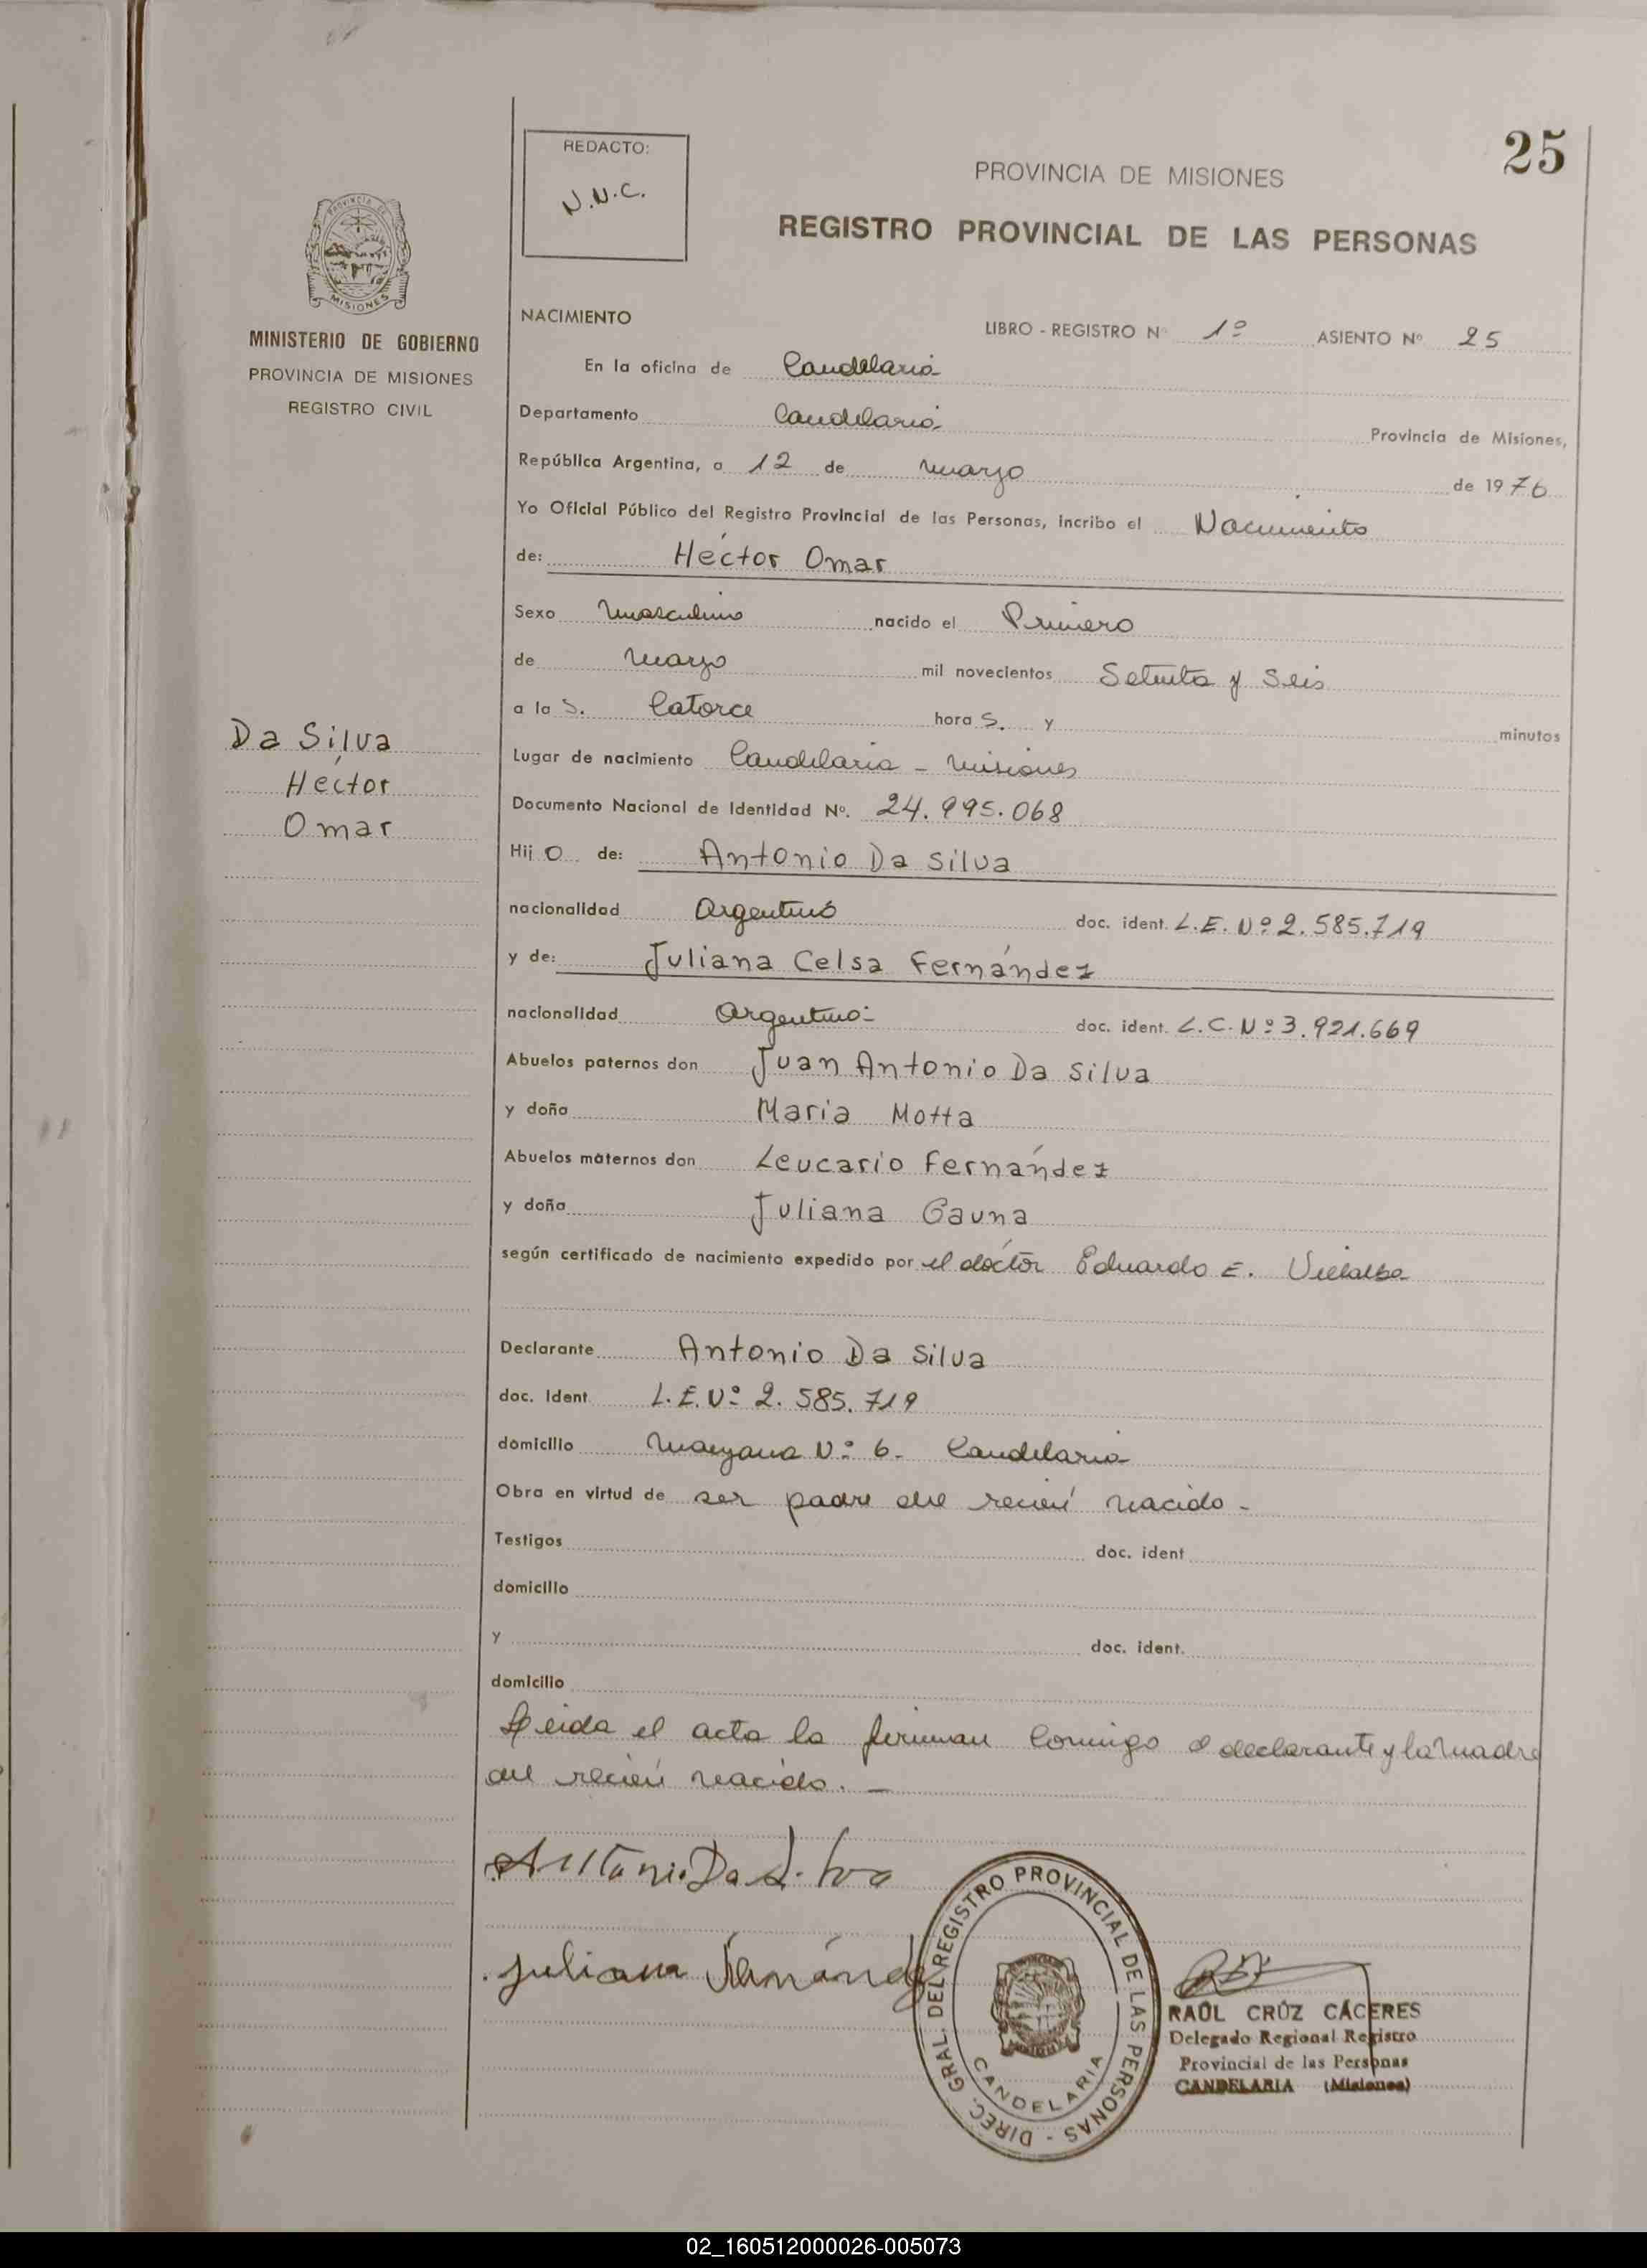 25
REDACTO:
N.N.C.
PROVINCIA DE MISIONES
REGISTRO PROVINCIAL DE LAS PERSONAS
PROVINCIA DE
MISIONES
MINISTERIO DE GOBIERNO
PROVINCIA DE MISIONES
REGISTRO CIVIL
Da Silva
Héctor
Omar
NACIMIENTO
LIBRO - REGISTRO Nº 1º ASIENTO Nº 25
En la oficina de Candelaria
Departamento Candelaria Provincia de Misiones,
República Argentina, a 12 de marzo de 1976
Yo Oficial Público del Registro Provincial de las Personas, incribo el Nacimiento
de: Héctor Omar
Sexo masculino nacido el Primero
de marzo mil novecientos Setenta y Seis
a la s. Catorce hora s. y minutos
Lugar de nacimiento Candelaria - Misiones
Documento Nacional de Identidad Nº. 24.995.068
Hij o de: Antonio Da Silva
nacionalidad Argentino doc. ident. L.E. Nº 2.585.719
y de: Juliana Celsa Fernández
nacionalidad Argentina- doc. ident. L.C. Nº 3.921.669
Abuelos paternos don Juan Antonio Da Silva
y doña Maria Motta
Abuelos maternos don Leucario Fernández
y doña Juliana Gauna
según certificado de nacimiento expedido por el doctor Eduardo E. Villalba
Declarante Antonio Da Silva
doc. Ident. L.E. Nº 2.585.719
domicilio Manzana Nº 6- Candelaria
Obra en virtud de ser padre del recién nacido -
Testigos doc. ident
domicilio
y doc. ident.
domicilio
Leida el acta la firman conmigo el declarante y la madre
del recién nacido. -
Antonio Da Silva
Juliana Fernández
DIREC. GRAL. DEL REGISTRO PROVINCIAL DE LAS PERSONAS -
CANDELARIA
RAÚL CRÚZ CÁCERES
Delegado Regional Registro
Provincial de las Personas
CANDELARIA (Misiones)
02_160512000026-005073